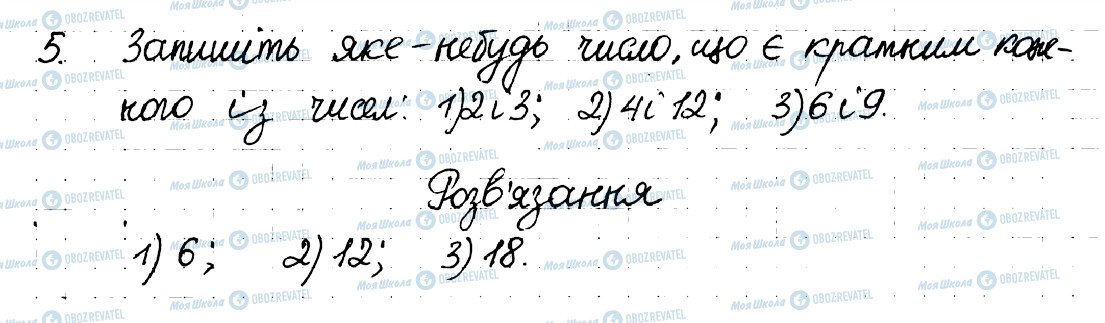 5. Запишіть яке-небудь число, що є кратним кож-
ного із чисел: 1) 2 і 3; 2) 4 і 12; 3) 6 і 9.
Розв'язання
1) 6; 2) 12; 3) 18.